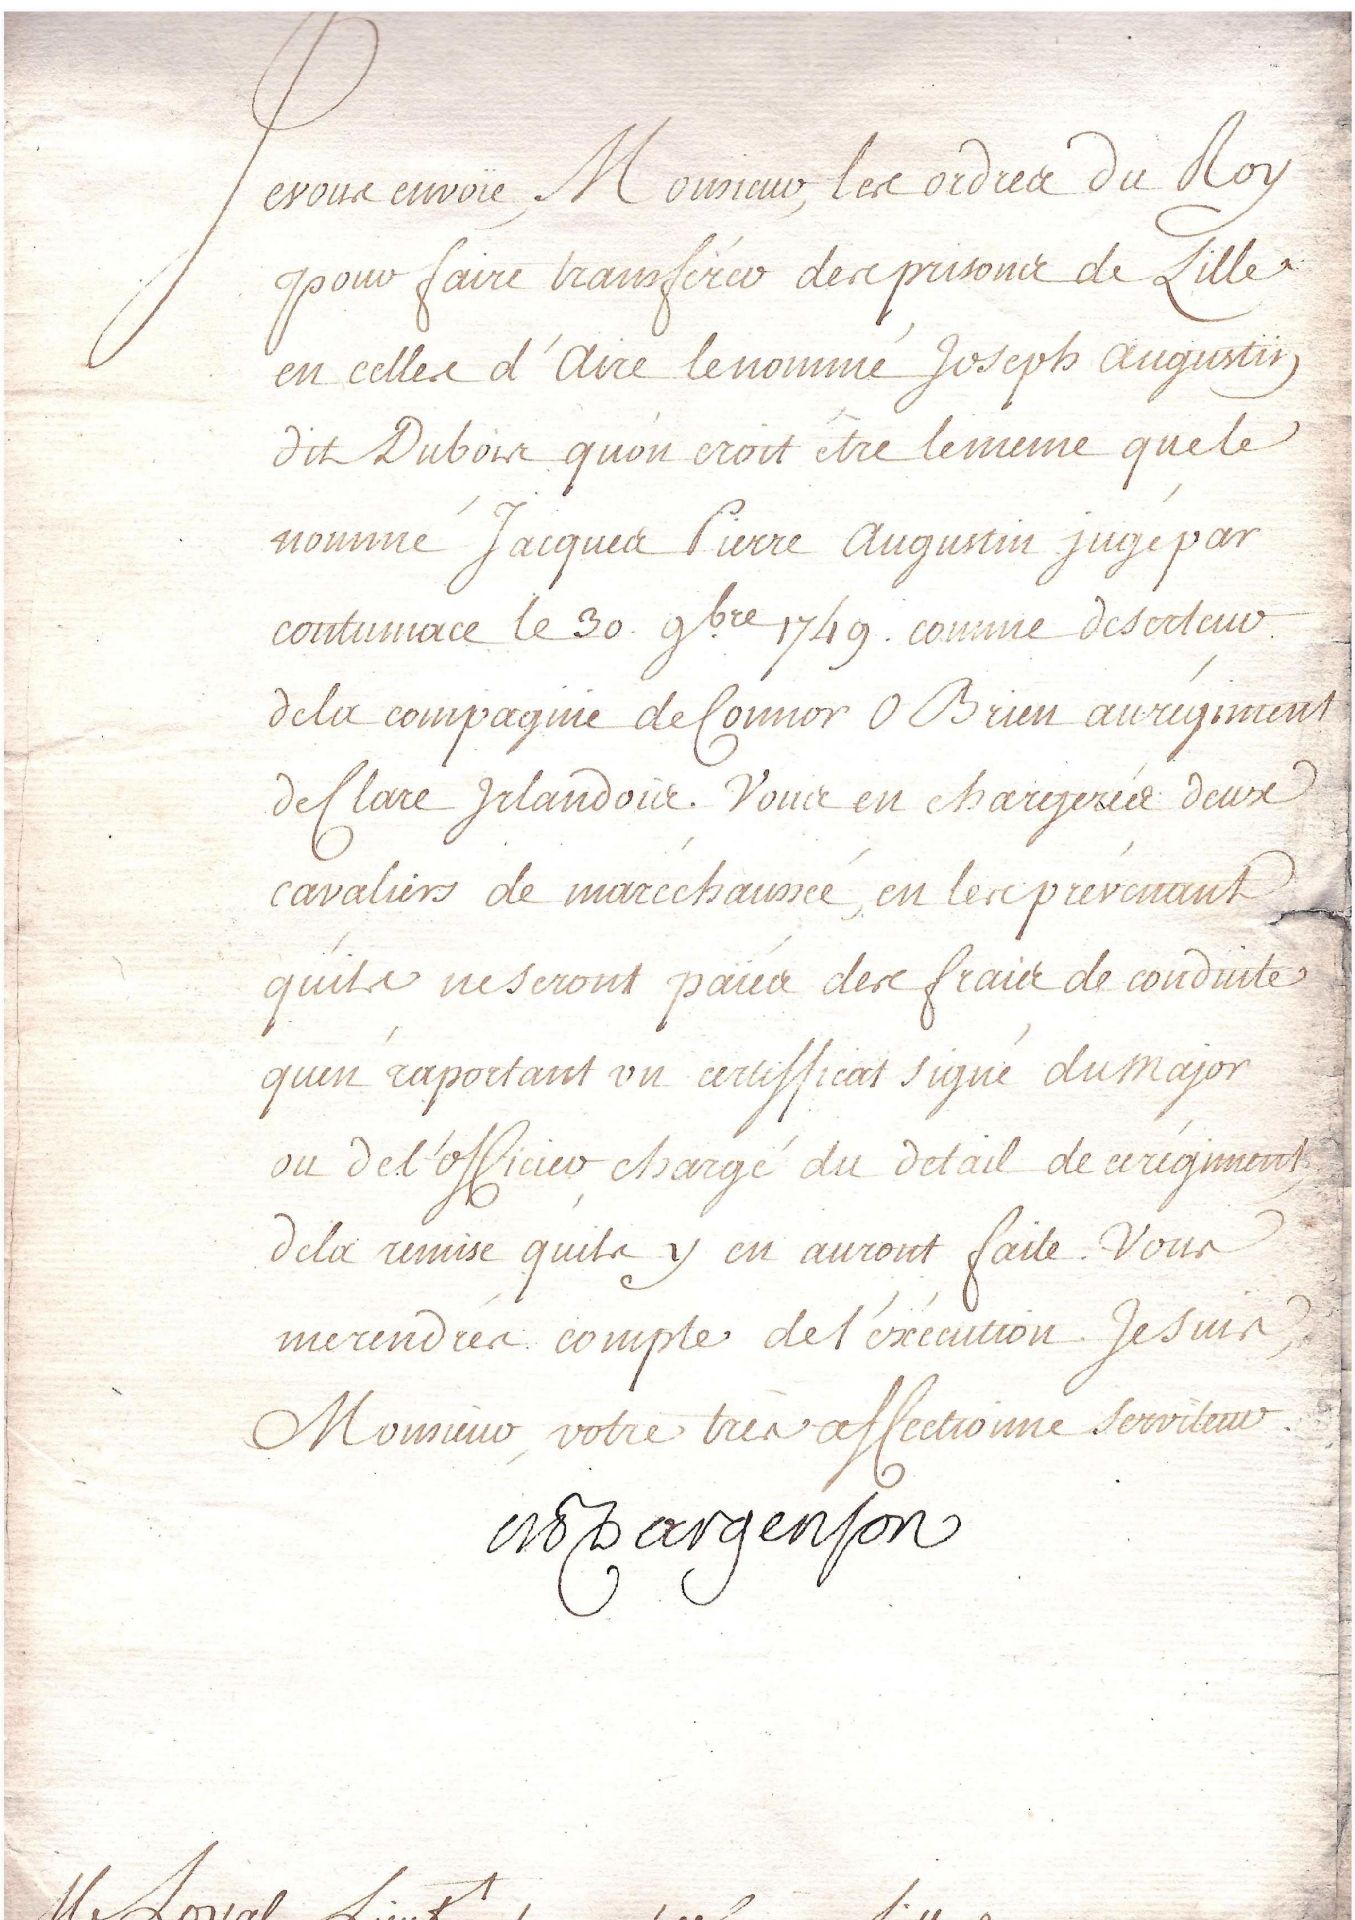 Je vous envoïe, Monsieur, les ordres du Roy
pour faire transférer des prisons de Lille
en celles d'Aire le nommé Joseph Augustin
dit Dubois qu'on croit être le meme que le
nommé Jacques Pierre Augustin jugé par
contumace le 30. 9bre 1749. comme deserteur
de la compagnie de Connor O Brien au régiment
de Clare Irlandois. Vous en chargerés deux
cavaliers de maréchaussée, en les prévenant
qu'ils ne seront païés des frais de conduite
qu'en raportant un certifficat signé du Major
ou de l'officier chargé du detail de ce régiment,
de la remise qu'ils y en auront faite. Vous
me rendrés compte de l'éxécution. Je suis,
Monsieur, votre très affectionné serviteur.
Dargenson
M. Loyal Lieut